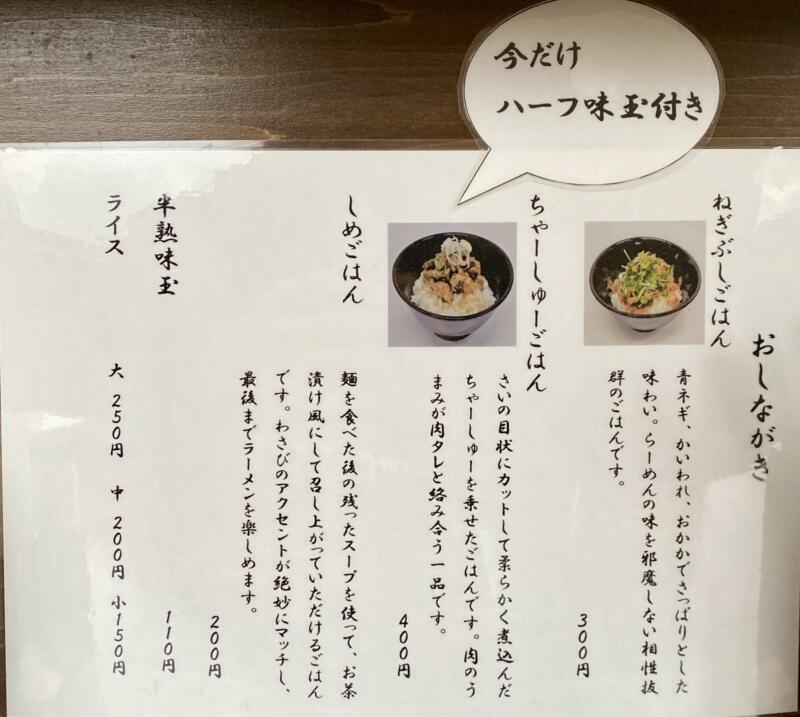 今だけ
ハーフ味玉付き
おしながき
ねぎぶしごはん
青ネギ、かいわれ、おかかでさっぱりとした
味わい。らーめんの味を邪魔しない相性抜
群のごはんです。
300円
ちゃーしゅーごはん
さいの目状にカットして柔らかく煮込んだ
ちゃーしゅーを乗せたごはんです。肉のう
まみが肉タレと絡み合う一品です。
400円
しめごはん
麺を食べた後の残ったスープを使って、お茶
漬け風にして召し上がっていただけるごはん
です。わさびのアクセントが絶妙にマッチし、
最後までラーメンを楽しめます。
200円
半熟味玉
110円
ライス
大 250円 中 200円 小150円